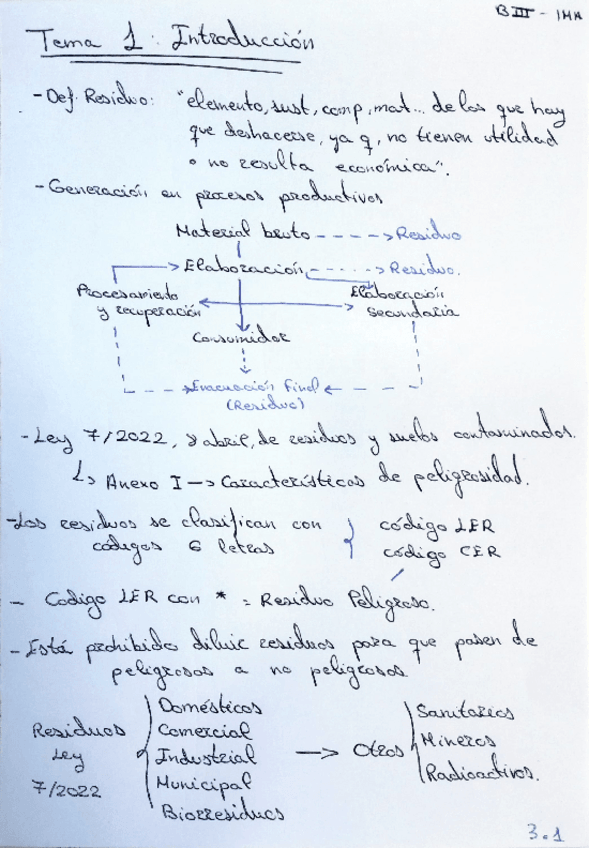 BIII - IMA
Tema 1: Introducción
- Def. Residuo: "elemento, sust, comp, mat... de los que hay
que deshacerse, ya q, no tienen utilidad
o no resulta económica".
- Generación en procesos productivos
Material bruto ----> Residuo
Elaboración ----> Residuo.
Procesamiento
y recuperación
Elaboración
Secundaria
Consumidor
Evacuación Final
(Residuo)
- Ley 7/2022, 8 abril, de residuos y suelos contaminados.
↳ Anexo I -> Características de peligrosidad.
- Los residuos se clasifican con
códigos 6 letras
código LER
código CER
- Codigo LER con * = Residuo Peligroso.
- Está prohibido diluir residuos para que pasen de
peligrosos a no peligrosos
Residuos
Ley
7/2022
Domésticos
Comercial
Industrial
Municipal
Biorresiduos
-> Otros
Sanitarios
Mineros
Radioactivos.
3.1